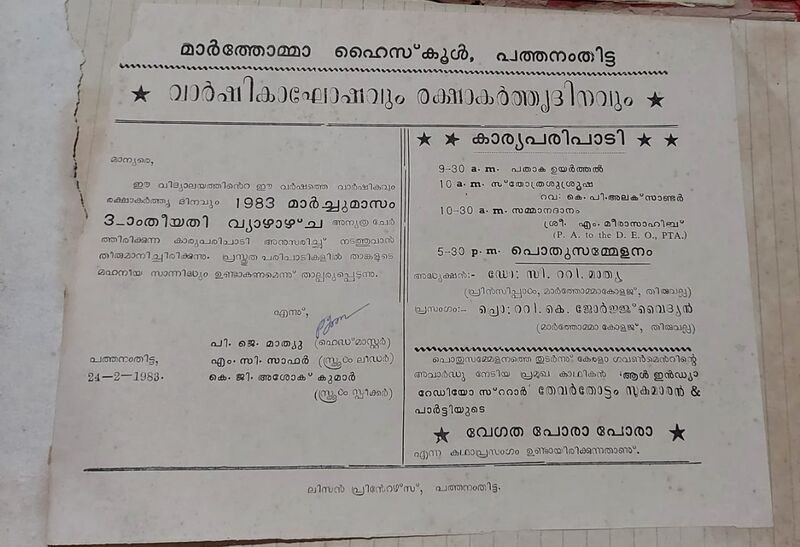 മാർത്തോമ്മാ ഹൈസ്കൂൾ, പത്തനംതിട്ട
★ വാർഷികാഘോഷവും രക്ഷാകർത്തൃദിനവും ★
മാന്യരെ,
ഈ വിദ്യാലയത്തിൻെറ ഈ വർഷത്തെ വാർഷികവും
രക്ഷാകർത്തൃ ദിനവും 1983 മാർച്ചുമാസം
3-ാംതീയതി വ്യാഴാഴ്ച അന്യത്ര ചേർ
ത്തിരിക്കുന്ന കാര്യപരിപാടി അനുസരിച്ച് നടത്തുവാൻ
തീരുമാനിച്ചിരിക്കുന്നു. പ്രസ്തുത പരിപാടികളിൽ താങ്കളുടെ
മഹനീയ സാന്നിദ്ധ്യം ഉണ്ടാകണമെന്നു് താല്പര്യപ്പെടുന്നു.
എന്നു്,
പി. ജെ. മാത്യു (ഹെഡ്മാസ്റ്റർ)
എം. സി. സാഫർ (സ്കൂൾ ലീഡർ)
കെ. ജി. അശോക് കുമാർ
(സ്കൂൾ സ്പീക്കർ)
പത്തനംതിട്ട,
24-2-1983.
★ ★ കാര്യപരിപാടി ★ ★
9-30 a. m. പതാക ഉയർത്തൽ
10 a. m. സ്തോത്രശുശ്രൂഷ
റവ. കെ. പി. അലക്സാണ്ടർ
10-30 a. m. സമ്മാനദാനം
ശ്രീ. എം. മീരാസാഹിബ്ബ്
(P. A. to the D. E. O., PTA.)
5-30 p. m. പൊതുസമ്മേളനം
അദ്ധ്യക്ഷൻ:- ഡോ: സി. ററി. മാത്യു
(പ്രിൻസിപ്പാൾ, മാർത്തോമ്മാകോളജ്, തിരുവല്ല)
പ്രസംഗം:- പ്രൊ: ററി. കെ. ജോർജ്ജ് വൈദ്യൻ
(മാർത്തോമ്മാ കോളജ്, തിരുവല്ല)
പൊതുസമ്മേളനത്തെ തുടർന്നു് കേരളാ ഗവൺമെൻറിൻെറ
അവാർഡു നേടിയ പ്രമുഖ കാഥികൻ 'ആൾ ഇൻഡ്യാ
റേഡിയോ സ്ററാർ' തേവർതോട്ടം സുകുമാരൻ &
പാർട്ടിയുടെ
★ വേഗത പോരാ പോരാ ★
എന്ന കഥാപ്രസംഗം ഉണ്ടായിരിക്കുന്നതാണു്.
ലിസൻ പ്രിൻേറഴ്സ്, പത്തനംതിട്ട.